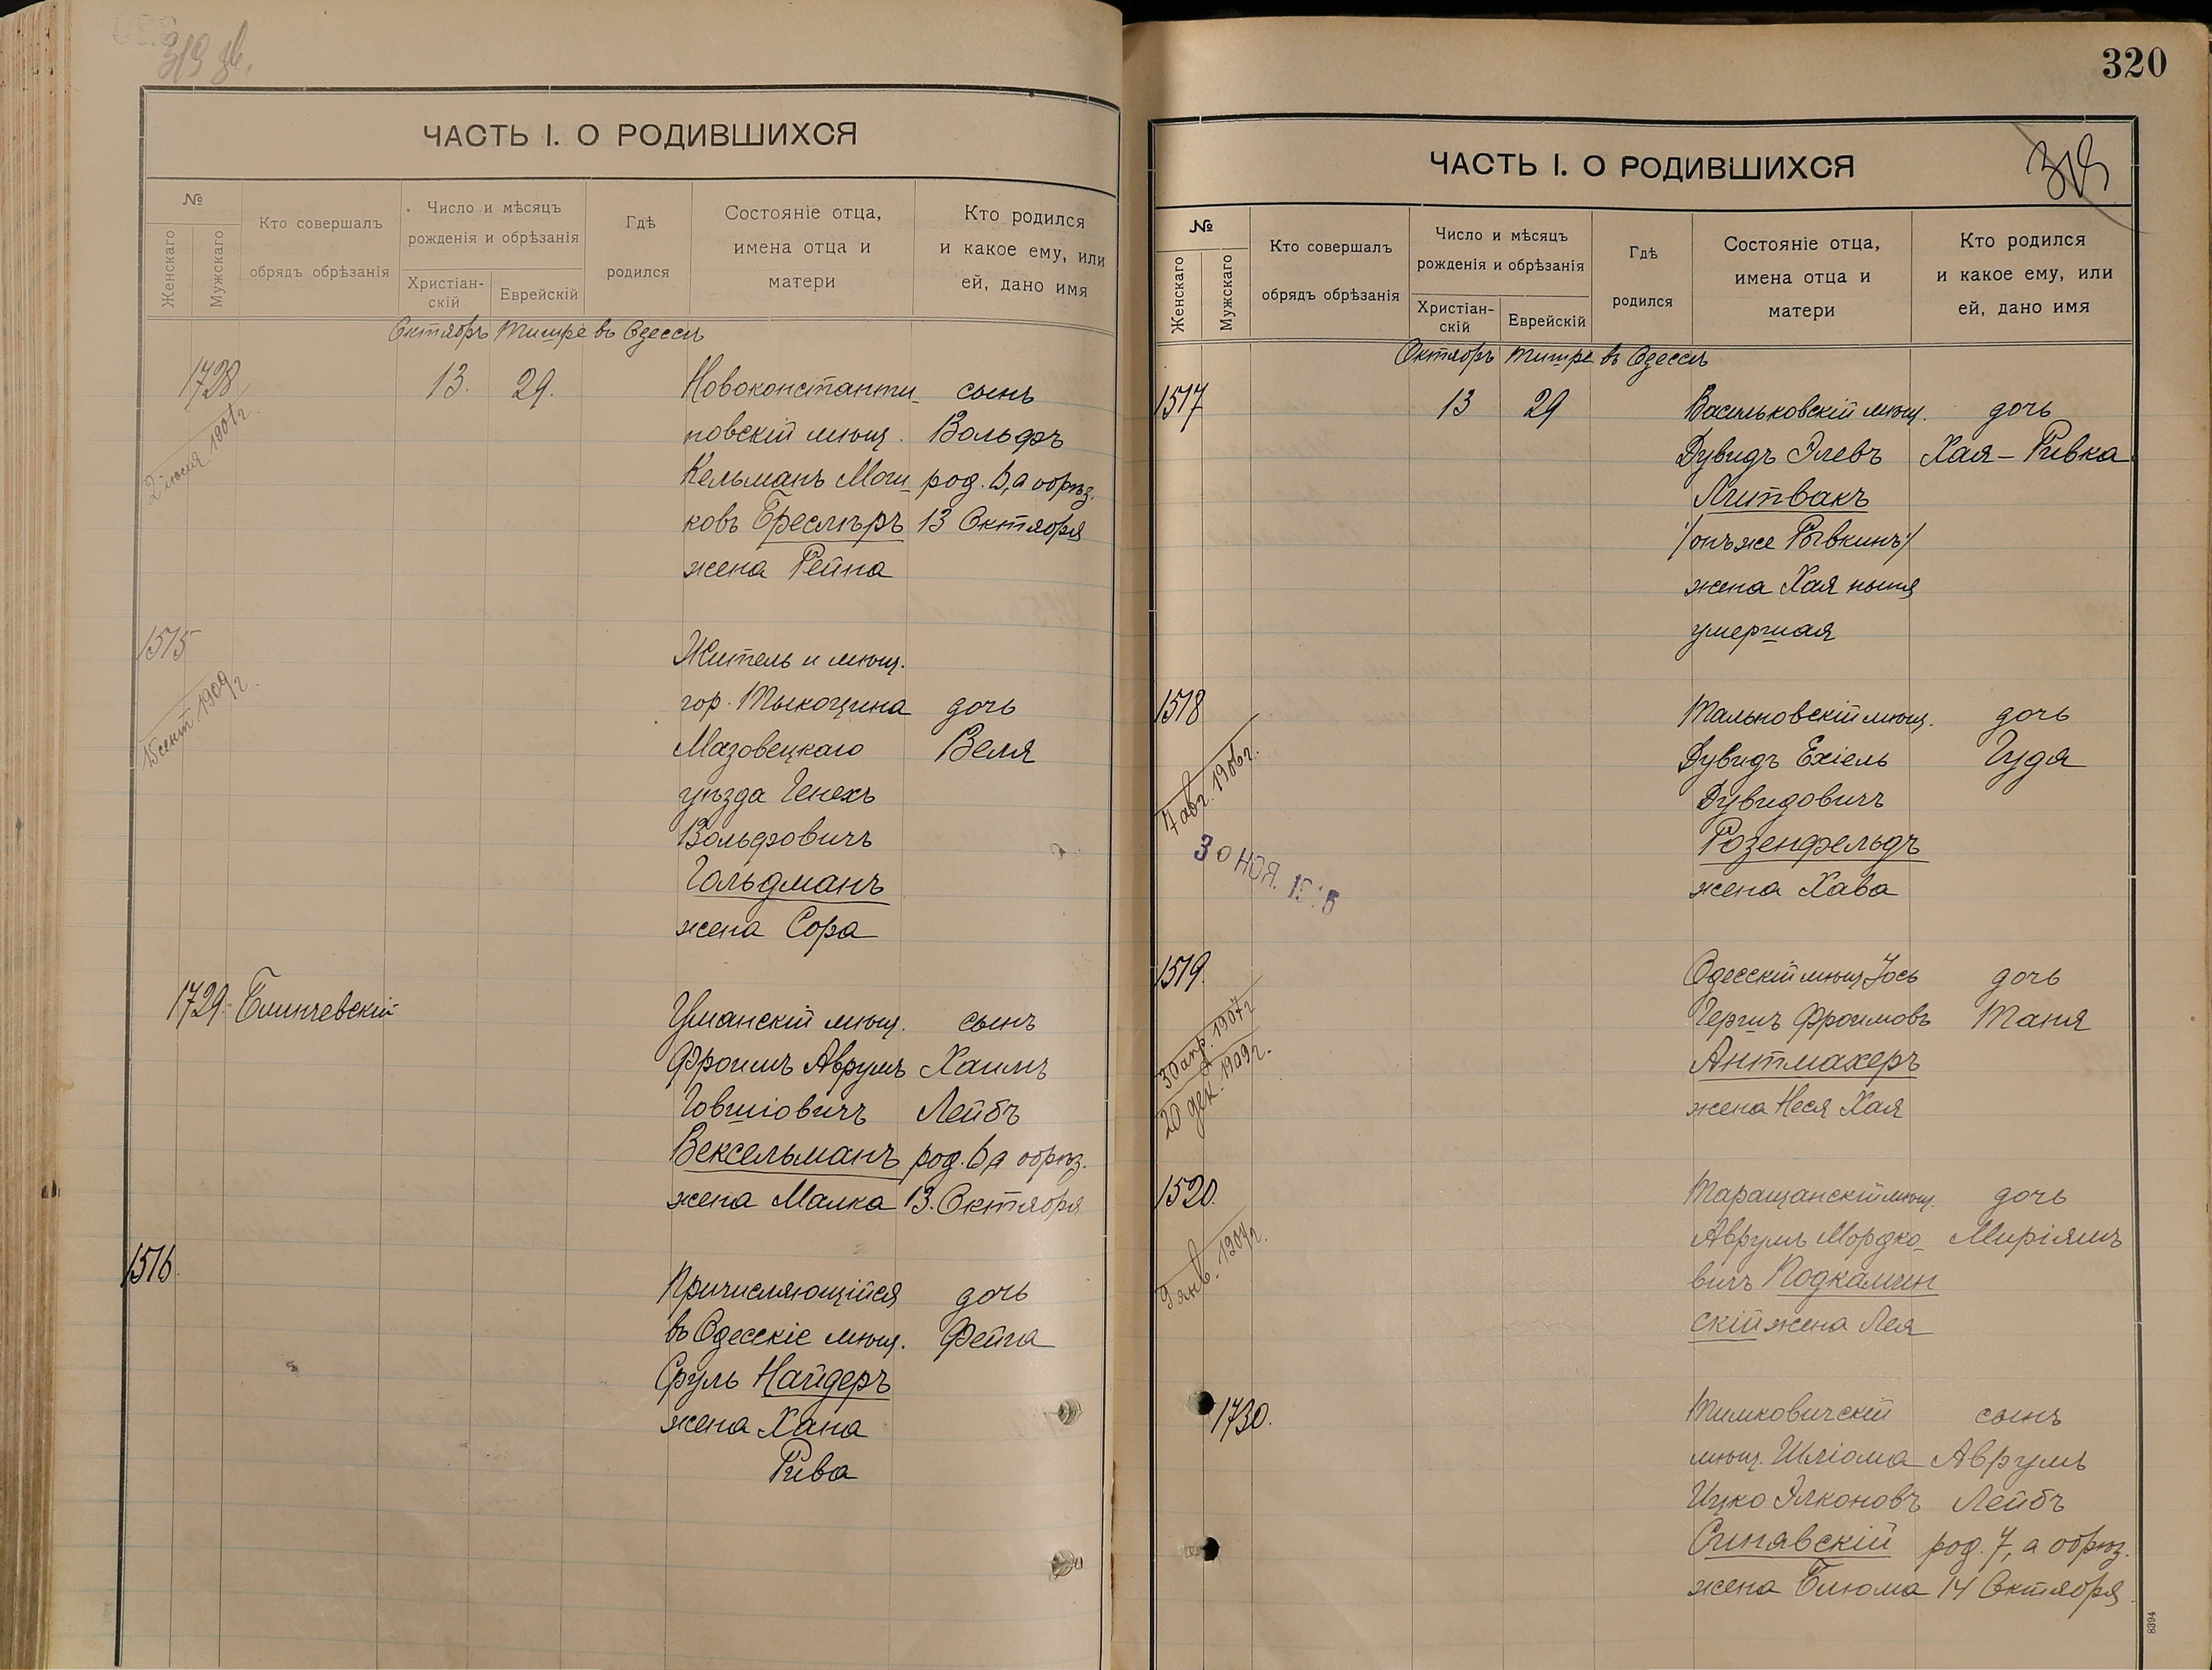 319 зв.
ЧАСТЬ I. О РОДИВШИХСЯ
№
Женскаго
Мужскаго
Кто совершалъ
обрядъ обрѣзанія
Число и мѣсяцъ
рожденія и обрѣзанія
Христіан-
скій
Еврейскій
Гдѣ
родился
Состояніе отца,
имена отца и
матери
Кто родился
и какое ему, или
ей, дано имя
Октябрь Тишре въ Одессѣ
1728 13. 29. Новоконстанти- сынъ
2 іюня
новскій мѣщ. Вольфъ
Кельманъ Мош- род. 6, а обрѣз.
ковъ Бреслеръ 13 Октября
жена Рейна
1515
15 сент. 1909 г.
Житель и мѣщ.
гор. Тыкоцина дочь
Мазовецкаго Веля
уѣзда Генехъ
Вольфовичъ
Гольдманъ
жена Сора
1729. Блинчевскій Уманскій мѣщ. сынъ
Фроимъ Аврумъ Хаимъ
Говшіовичъ Лейбъ
Вексельманъ род. 6 а обрѣз.
жена Малка 13. Октября
1516. Причисляющійся дочь
въ Одесскіе мѣщ. Фейга
Сруль Найдеръ
жена Хана
Рива
320
ЧАСТЬ I. О РОДИВШИХСЯ
319
№
Женскаго
Мужскаго
Кто совершалъ
обрядъ обрѣзанія
Число и мѣсяцъ
рожденія и обрѣзанія
Христіан-
скій
Еврейскій
Гдѣ
родился
Состояніе отца,
имена отца и
матери
Кто родился
и какое ему, или
ей, дано имя
Октябрь Тишре въ Одессѣ
1517 13 29 Васильковскій мѣщ. дочь
Дувидъ Элевъ Хая-Ривка
Литвакъ
/онъ же Рывкинъ/
жена Хая нынѣ
умершая
1518 Тальновскій мѣщ. дочь
4 авг. 1906 г.
30 НОЯ.
Дувидъ Ехіель Гудя
Дувидовичъ
Розенфельдъ
жена Хава
1519. Одесскій мѣщ. Іось дочь
30 апр. 1907 г.
20 дек. 1909 г.
Гершъ Фроимовъ Таня
Антмахеръ
жена Неся Хая
1520. Таращанскій мѣщ. дочь
9 янв. 1904 г.
Аврумъ Мордко- Миріямъ
вичъ Подкамин
скій жена Лея
1730. Тимковичскій сынъ
мѣщ. Шліома Аврумъ
Ицко Элконовъ Лейбъ
Синявскій род. 7, а обрѣз.
жена Блюма 14 Октября
8394